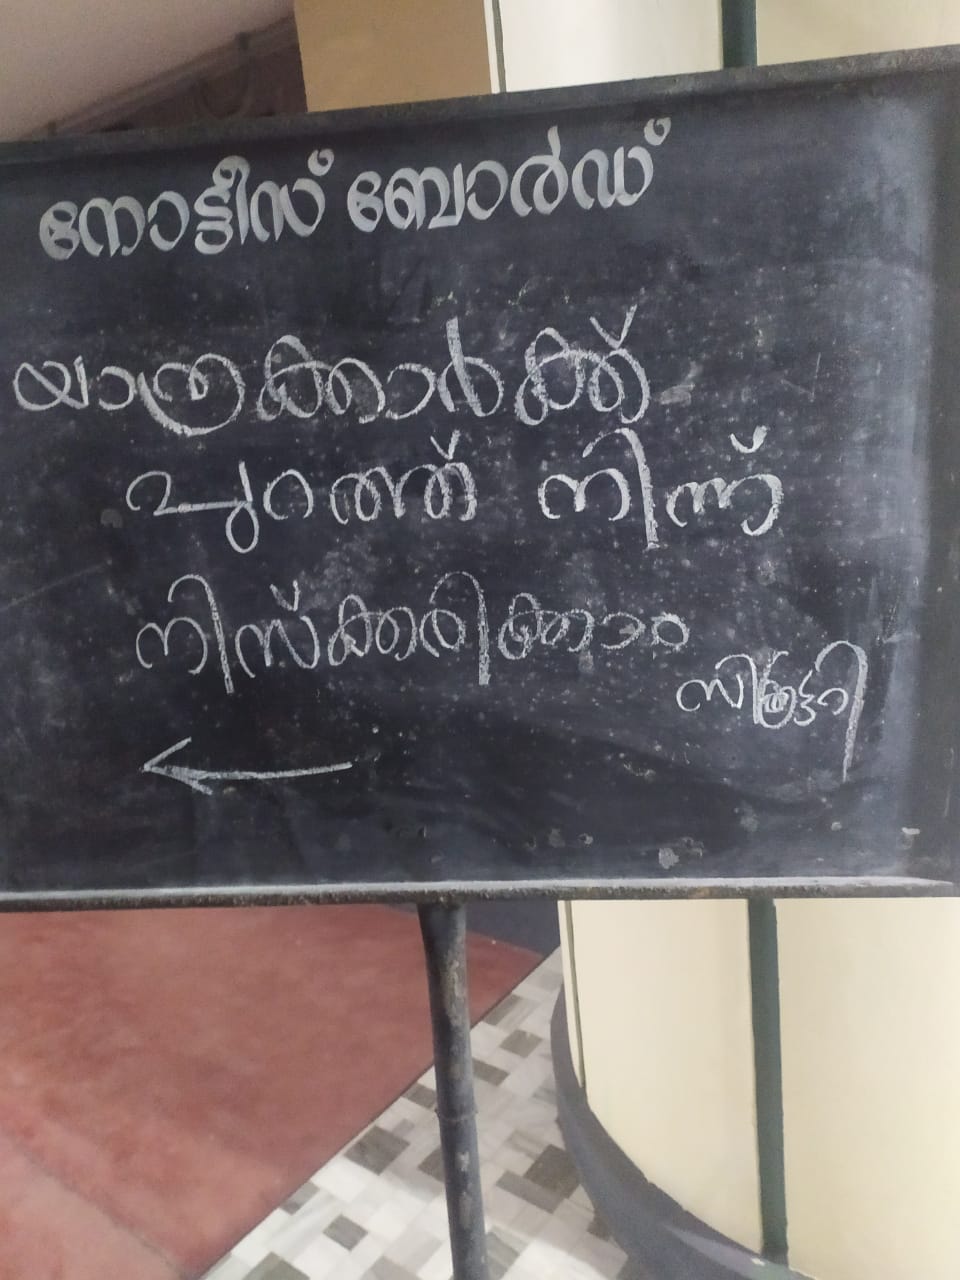 നോട്ടീസ് ബോർഡ്
യാത്രക്കാർക്ക്
പുറത്ത് നിന്ന്
നിസ്ക്കരിക്കാം
സിക്രട്ടറി